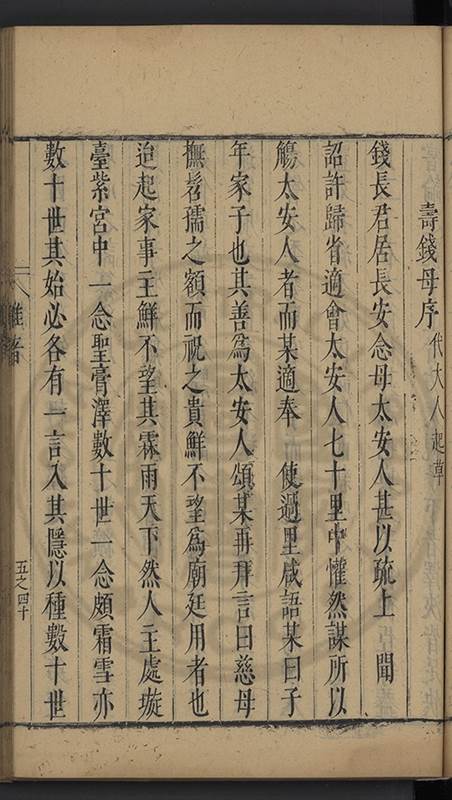 壽錢母序 代大人起草
錢長君居長安念母太安人甚以疏上 聞
詔許歸省適會太安人七十里中懽然謀所以
觴太安人者而某適奉 使過里咸語某曰子
年家子也其善為太安人頌某再拜言曰慈母
撫髫孺之額而祝之貴鮮不望為廟廷用者也
迨起家事主鮮不望其霖雨天下然人主處璇
臺紫宮中一念聖膏澤數十世一念頗霜雪亦
數十世其始必各有一言入其隱以種數十世
雜著
五之四十